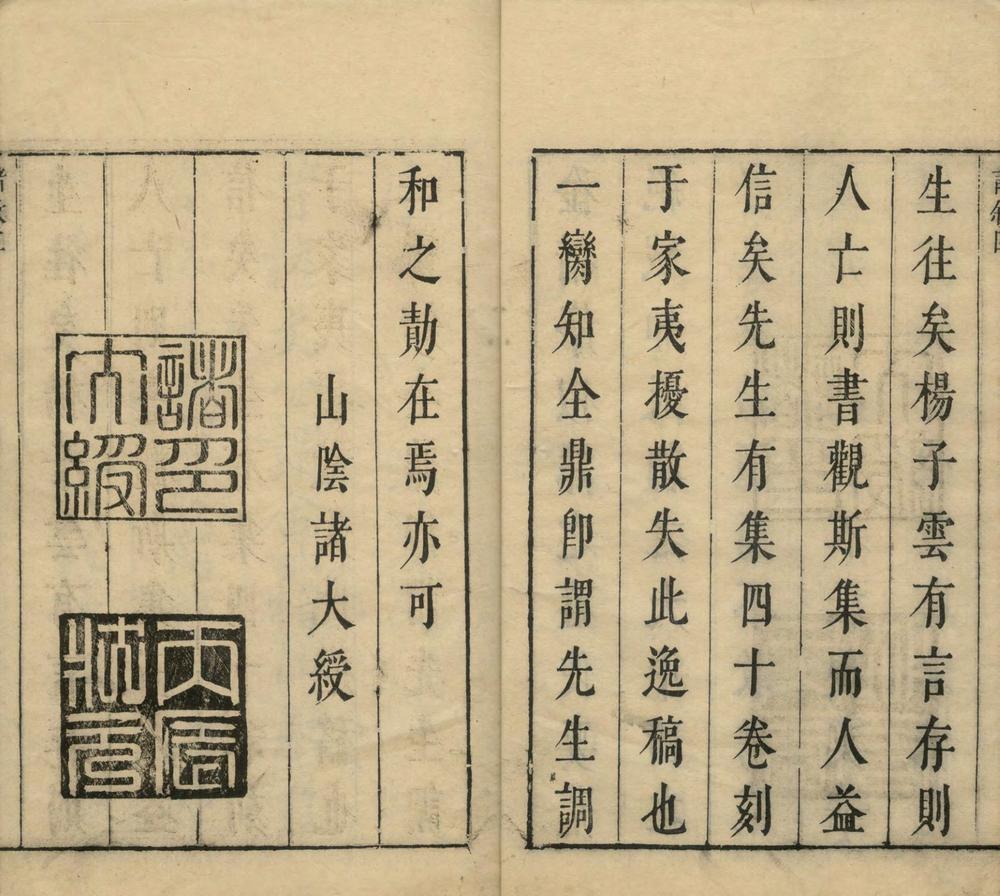 生往矣楊子雲有言存則
人亡則書觀斯集而人益
信矣先生有集四十卷刻
于家夷擾散失此逸稿也
一臠知全鼎卽謂先生調
和之勣在焉亦可
山陰諸大綬
諸印大綬
丙辰狀元